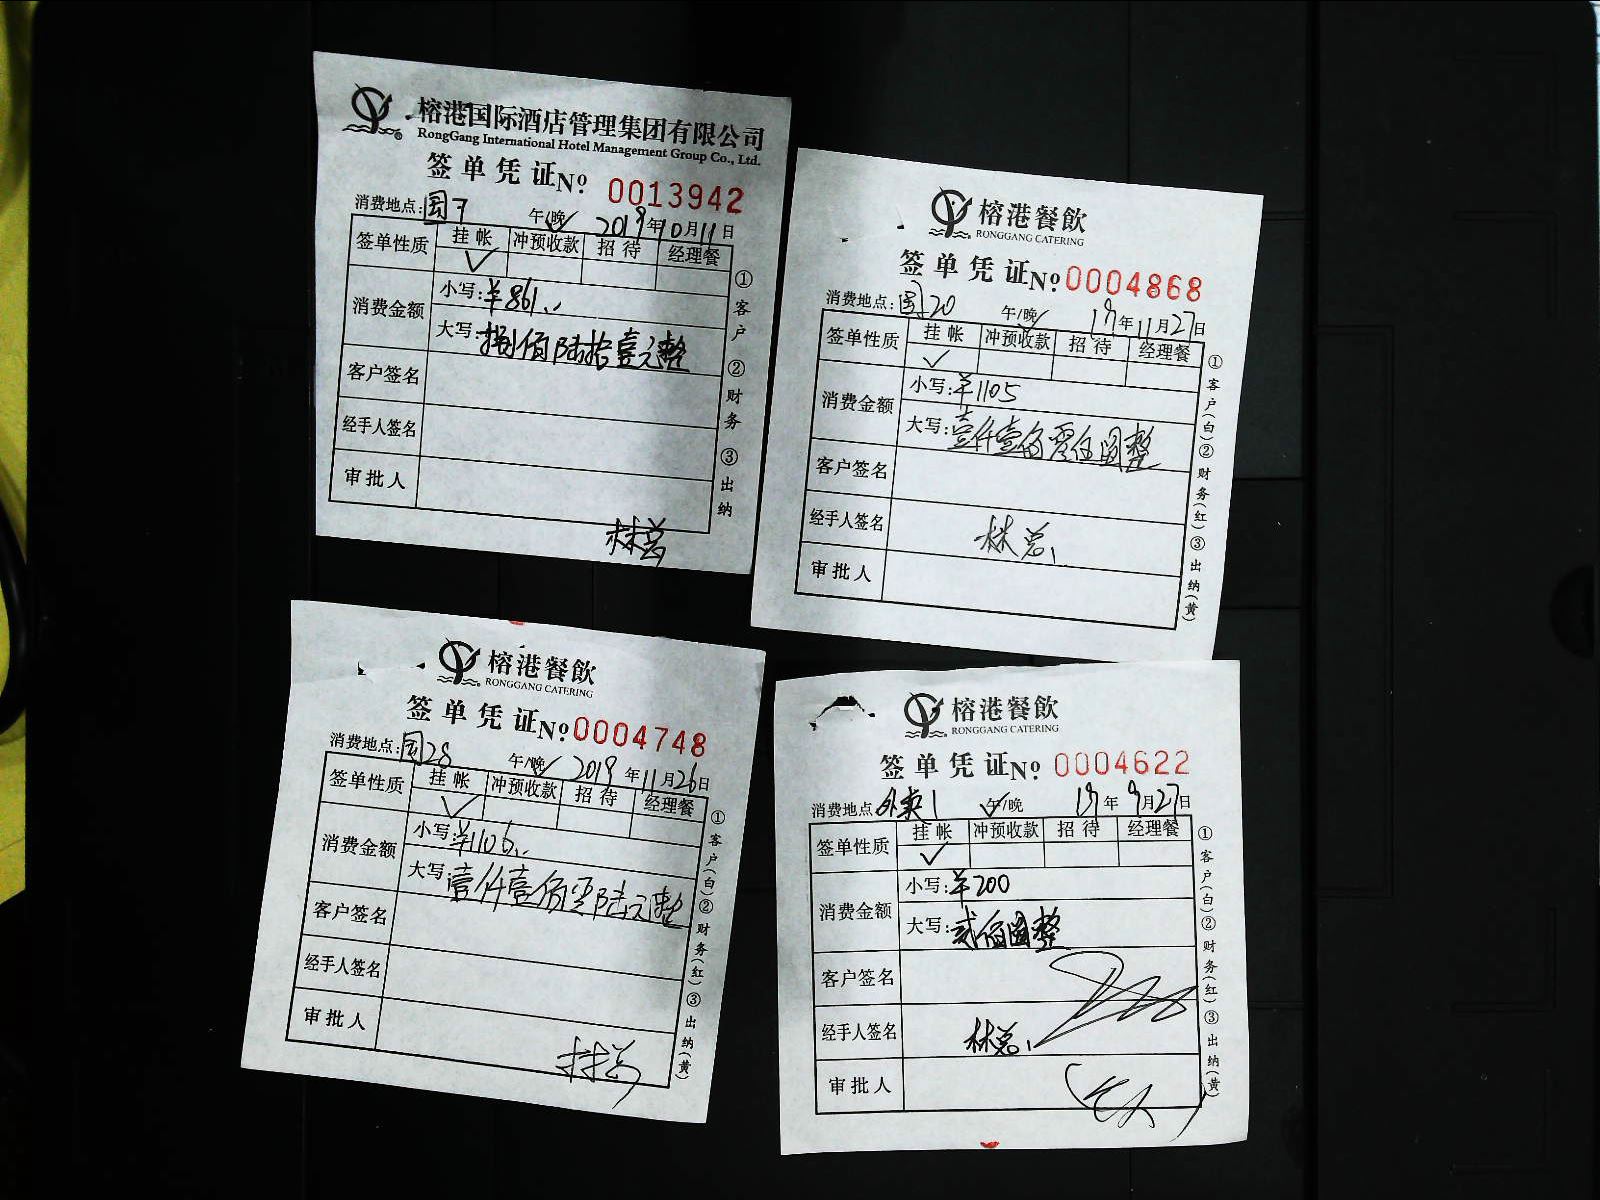 榕港国际酒店管理集团有限公司
RongGang International Hotel Management Group Co., Ltd.
签单凭证 Nº 0013942
消费地点:国7 午/晚✓ 2019年10月11日
签单性质 挂帐 冲预收款 招待 经理餐
✓
消费金额 小写:¥861..
大写:捌佰陆拾壹元整
客户签名
经手人签名
审批人
林总
①客户 ②财务 ③出纳
榕港餐飲
RONGGANG CATERING
签单凭证 Nº 0004868
消费地点:国20 午/晚✓ 19年11月27日
签单性质 挂帐 冲预收款 招待 经理餐
✓
消费金额 小写:¥1105
大写:壹仟壹佰零伍圆整
客户签名
经手人签名 林总
审批人
①客户(白)②财务(红)③出纳(黄)
榕港餐飲
RONGGANG CATERING
签单凭证 Nº 0004748
消费地点:国28 午/晚✓ 2019年11月26日
签单性质 挂帐 冲预收款 招待 经理餐
✓
消费金额 小写:¥1106..
大写:壹仟壹佰零陆元整
客户签名
经手人签名
审批人
林总
①客户(白)②财务(红)③出纳(黄)
榕港餐飲
RONGGANG CATERING
签单凭证 Nº 0004622
消费地点:外卖1 午✓/晚 19年9月27日
签单性质 挂帐 冲预收款 招待 经理餐
✓
消费金额 小写:¥200
大写:贰佰圆整
客户签名
经手人签名 林总
审批人
①客户(白)②财务(红)③出纳(黄)